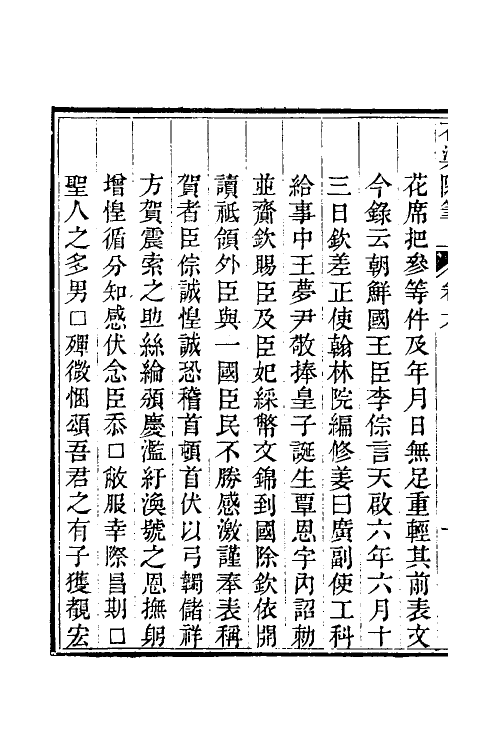 花席把參等件及年月日無足重輕其前表文
今錄云朝鮮國王臣李倧言天啟六年六月十
三日欽差正使翰林院編修姜曰廣副使工科
給事中王夢尹敬捧皇子誕生覃恩宇內詔勅
並齎欽賜臣及臣妃綵幣文錦到國除欽依開
讀祗領外臣與一國臣民不勝感激謹奉表稱
賀者臣倧誠惶誠恐稽首頓首伏以弓韣儲祥
方賀震索之助絲綸頒慶濫紆渙號之恩撫躬
增惶循分知感伏念臣忝口敝服幸際昌期口
聖人之多男口殫微悃頌吾君之有子獲覩宏